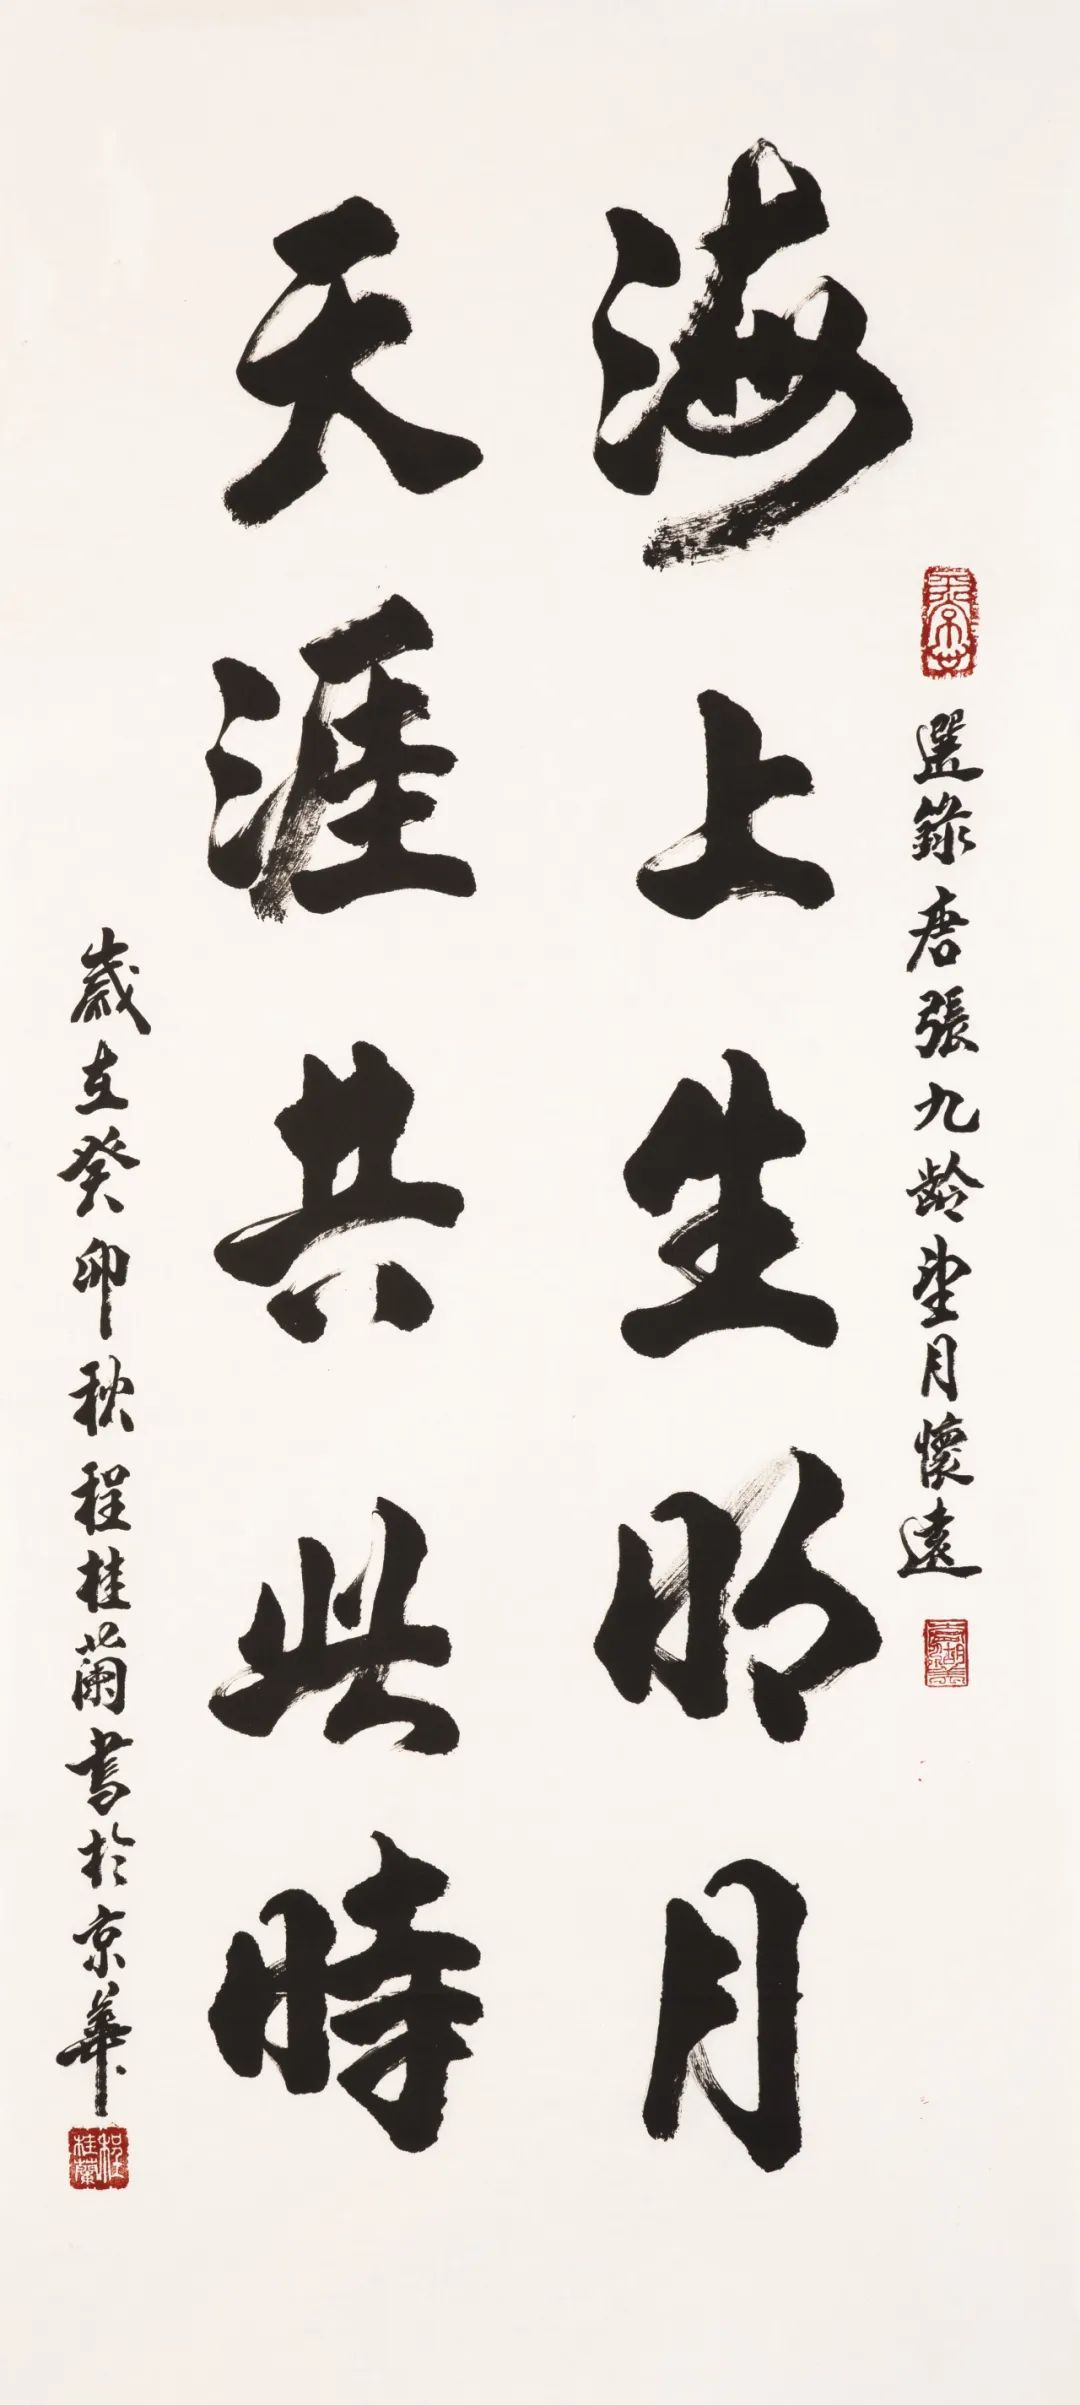 選錄唐張九齡望月懷遠
海上生明月
天涯共此時
歲在癸卯秋程桂蘭書於京華
程桂蘭